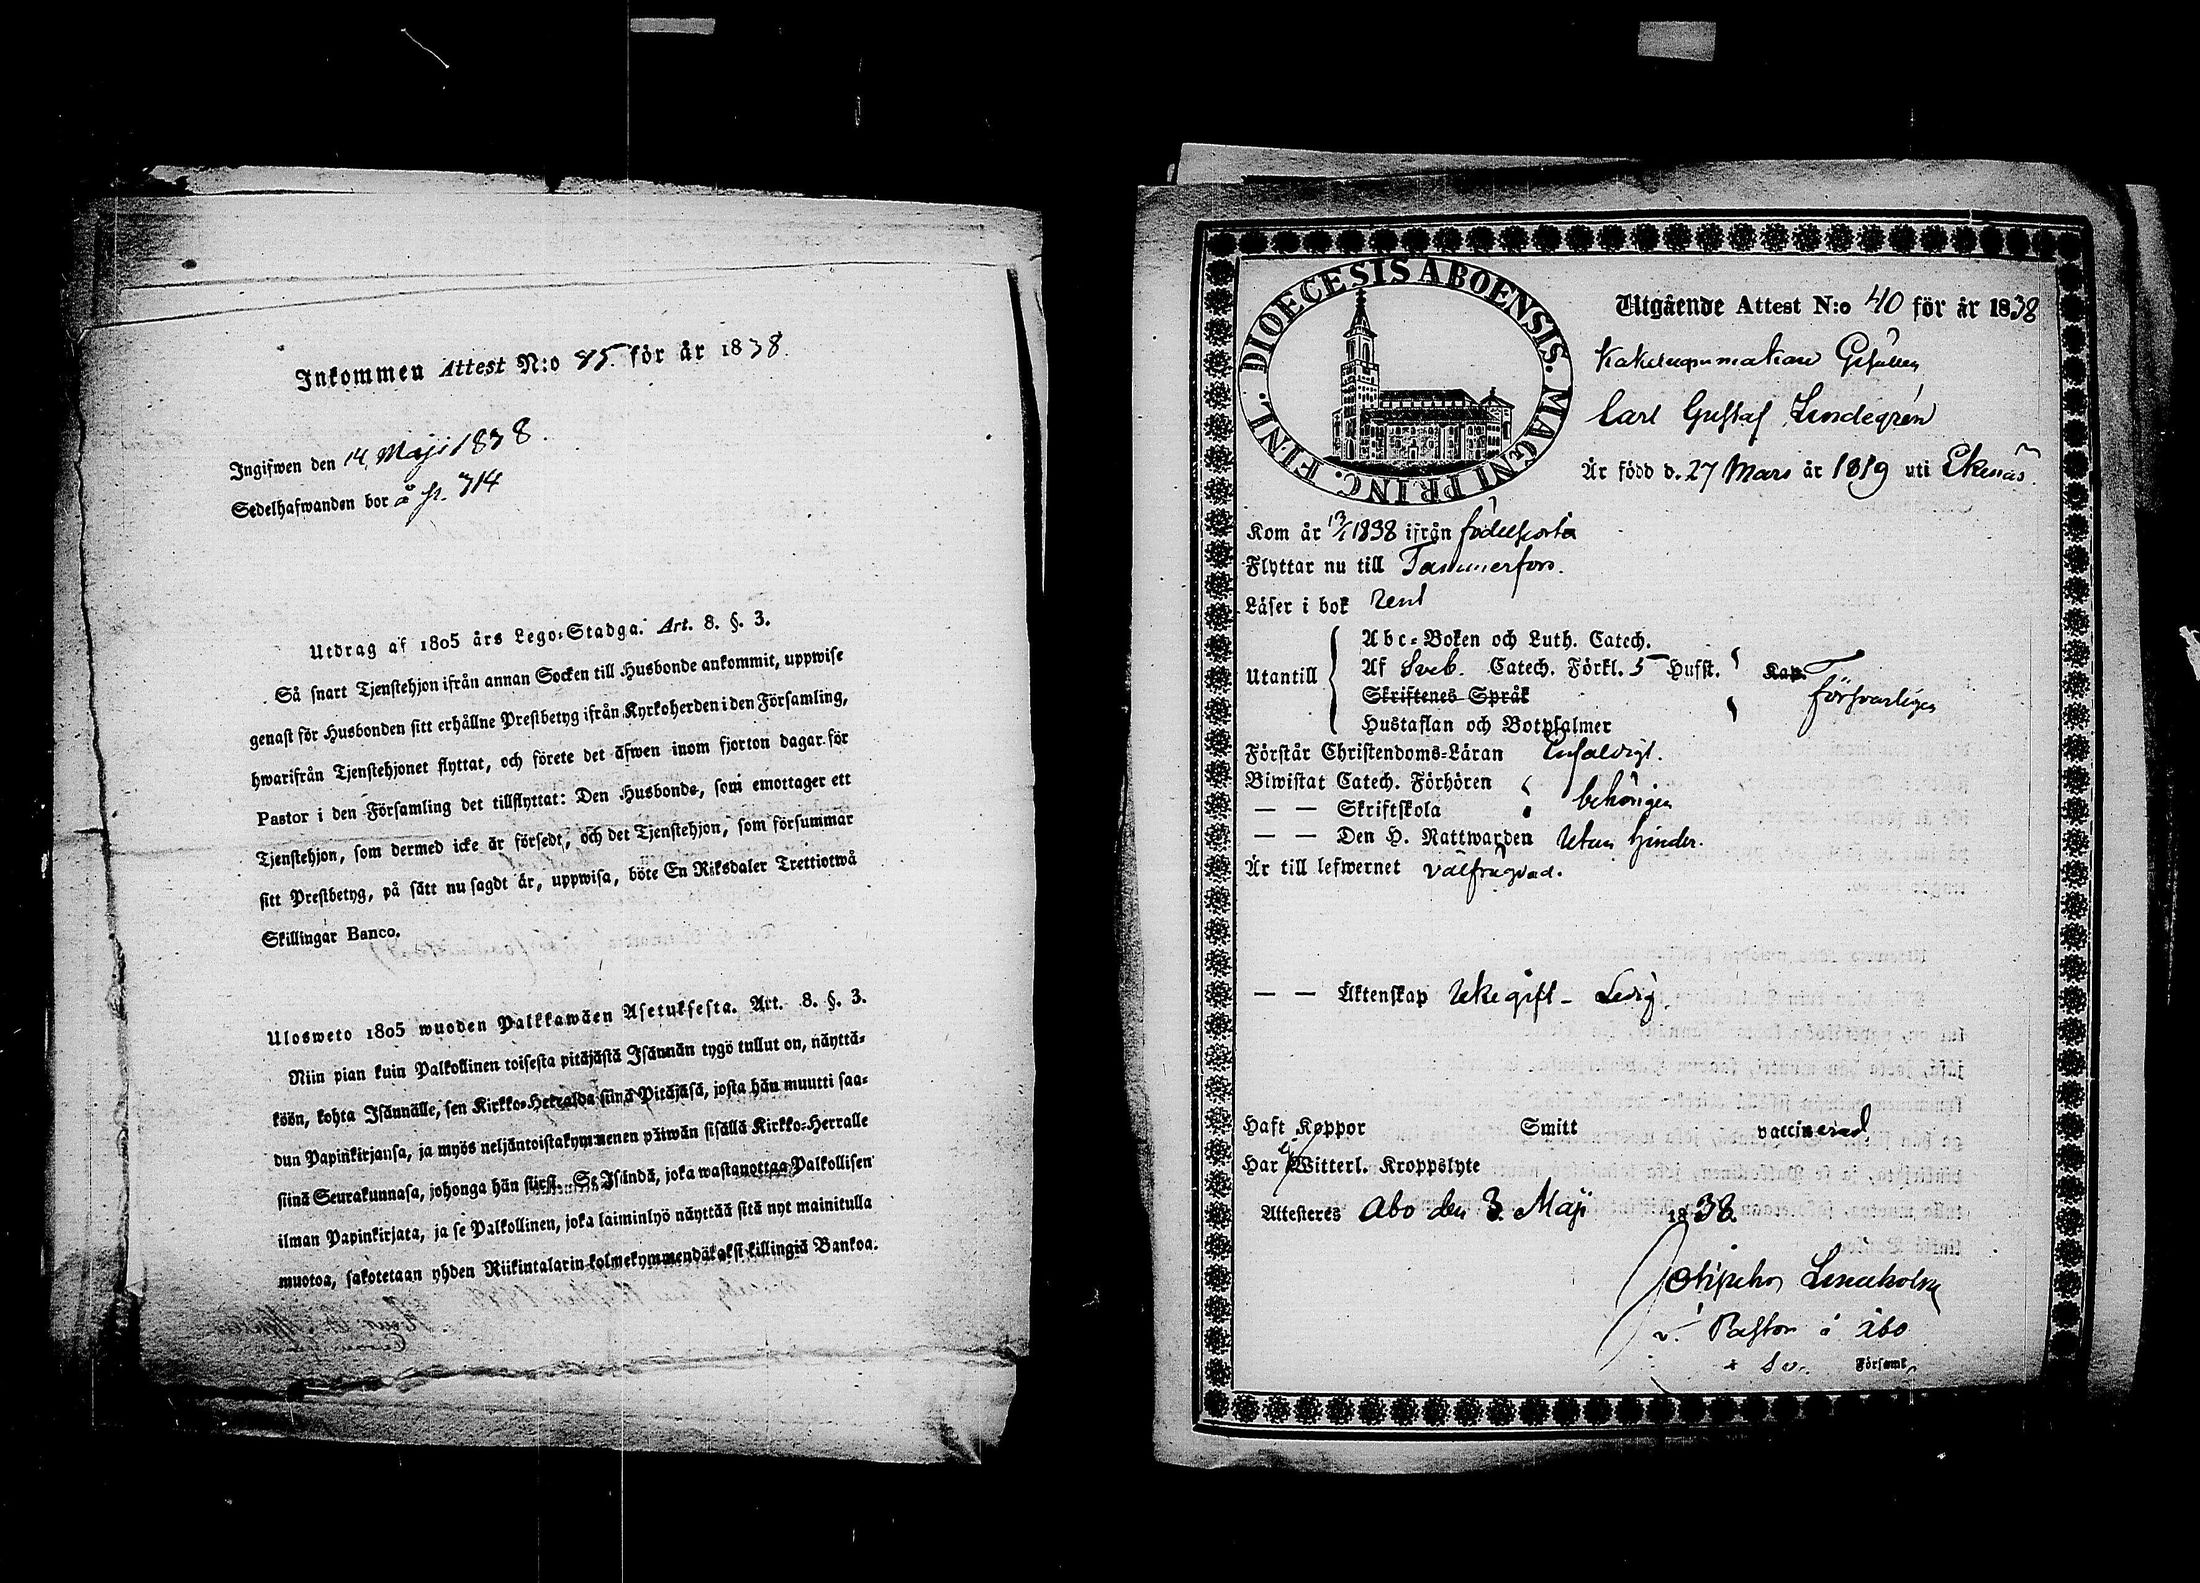 Inkommen Attest N:o 85. för år 1838.
Ingifwen den 14 Maji 1838.
Sedelhafwanden bor å st. 314
Utdrag af 1805 års Lego-Stadga. Art. 8. §. 3.
Så snart Tjenstehjon ifrån annan Socken till Husbonde ankommit, uppwise
genast för Husbonden sitt erhållne Prestbetyg ifrån Kyrkoherden i den Församling,
hwarifrån Tjenstehjonet flyttat, och förete det äfwen inom fjorton dagar för
Pastor i den Församling det tillflyttat: Den Husbonde, som emottager ett
Tjenstehjon, som dermed icke är försedt, och det Tjenstehjon, som försummar
sitt Prestbetyg, på sätt nu sagdt är, uppwisa, böte En Riksdaler Trettiotwå
Skillingar Banco.
Ulosweto 1805 wuoden Palkkawäen Asetuksesta. Art. 8. §. 3.
Niin pian kuin Palkollinen toisesta pitäjästä Isännän tygö tullut on, näyttä-
köön, kohta Isännälle, sen Kirkko-Herralda siinä Pitäjäsä, josta hän muutti saa-
dun Papinkirjansa, ja myös neljäntoistakymmenen päiwän sisällä Kirkko-Herralle
siinä Seurakunnasa, johonga hän siirsi. Se Isändä, joka wastanottaa Palkollisen
ilman Papinkirjata, ja se Palkollinen, joka laiminlyö näyttää sitä nyt mainitulla
muotoa, sakotetaan yhden Riikintalarin kolmekymmendäkaksi killingiä Bankoa.
DIOECESIS ABOENSIS. MAGNI PRINC. FINL.
Utgående Attest N:o 40 för år 1838
Kakelugnmakare Gesällen
Carl Gustaf Lindegrén
Är född d. 27 Mars år 1819 uti Ekenäs.
Kom år 13/1 1838 ifrån födelseorten
Flyttar nu till Tammerfors.
Läser i bok rent
Abc-Boken och Luth. Catech.
Utantill Af Sveb. Catech. Förkl. 5 Hufst. Kap.
Skriftenes Språk
Försvarligen
Hustaflan och Botpsalmer
Förstår Christendoms-Läran Enfaldigt.
Biwistat Catech. Förhören
— — Skriftskola behörigen
— — Den H. Nattwarden Utan hinder.
Är till lefwernet välfrägdad.
— — Äktenskap Icke gift - Ledig.
Haft Koppor Smitt vaccinerad
Har ej Witterl. Kroppslyte
Attesteres Åbo den 3. Maji 1838.
v. Pastor i Åbo
Sv. Församl.